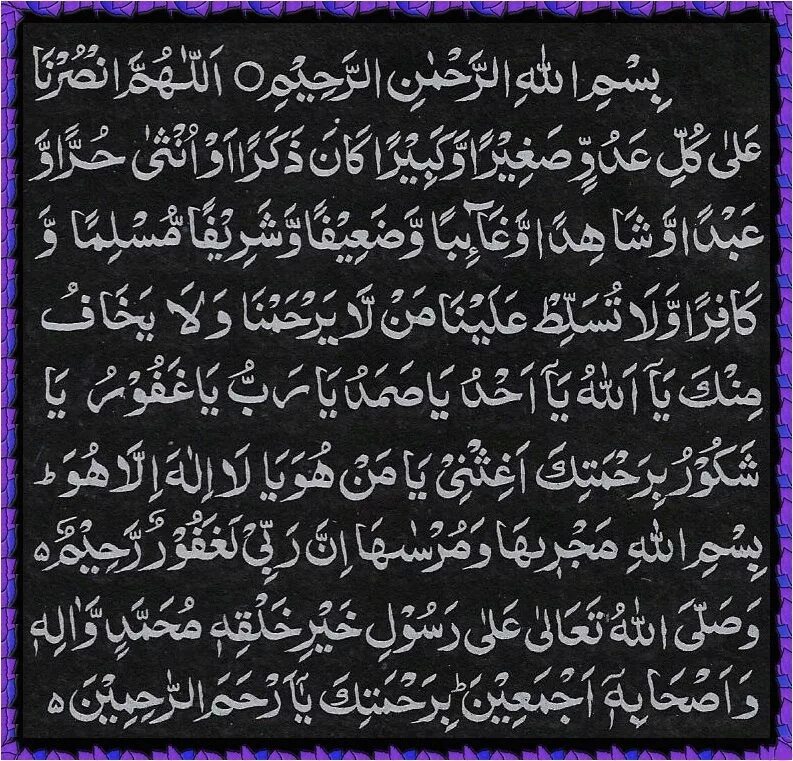 بِسْمِ اللهِ الرَّحْمٰنِ الرَّحِيْمِ ○ اَللّٰهُمَّ انْصُرْنَا
عَلٰى كُلِّ عَدُوٍّ صَغِيْرًا وَّكَبِيْرًا كَانَ ذَكَرًا اَوْ اُنْثٰى حُرًّا وَّ
عَبْدًا وَّ شَاهِدًا وَّغَآئِبًا وَّضَعِيْفًا وَّشَرِيْفًا مُّسْلِمًا وَّ
كَافِرًا وَّلَا تُسَلِّطْ عَلَيْنَا مَنْ لَّا يَرْحَمْنَا وَلَا يَخَافُ
مِنْكَ يَآ اَللهُ يَآ اَحْدُ يَا صَمَدُ يَا رَبُّ يَا غَفُوْرُ يَا
شَكُوْرُ بِرَحْمَتِكَ اَغِثْنِىْ يَا مَنْ هُوَ يَا لَا اِلٰهَ اِلَّا هُوَ ط
بِسْمِ اللهِ مَجْرٖىهَا وَمُرْسٰىهَا اِنَّ رَبِّىْ لَغَفُوْرٌ رَّحِيْمٌ ه
وَصَلَّى اللهُ تَعَالٰى عَلٰى رَسُوْلِ خَيْرِ خَلْقِهٖ مُحَمَّدٍ وَّاٰلِهٖ
وَاَصْحَابِهٖٓ اَجْمَعِيْنَ ط بِرَحْمَتِكَ يَآ اَرْحَمَ الرّٰحِمِيْنَ ه